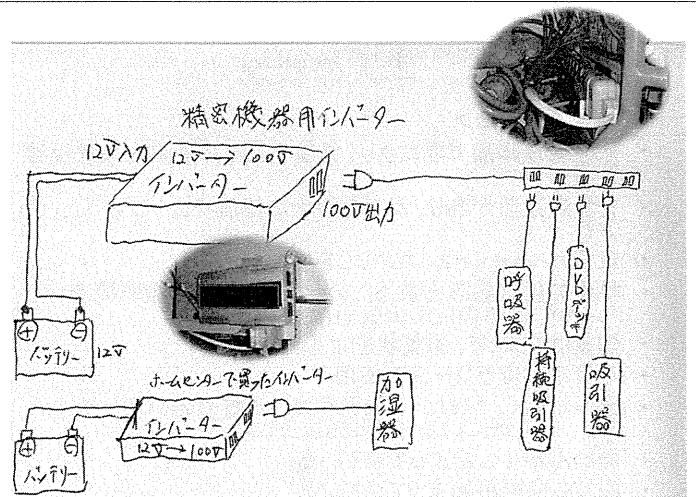 精密機器用インバーター
12V入力
12V→100V
インバーター
100V出力
⊕ ⊖
バッテリー
12V
呼吸器
持続吸引器
DVDデッキ
吸引器
ホームセンターで買ったインバーター
インバーター
12V→100V
加湿器
⊕ ⊖
バッテリー